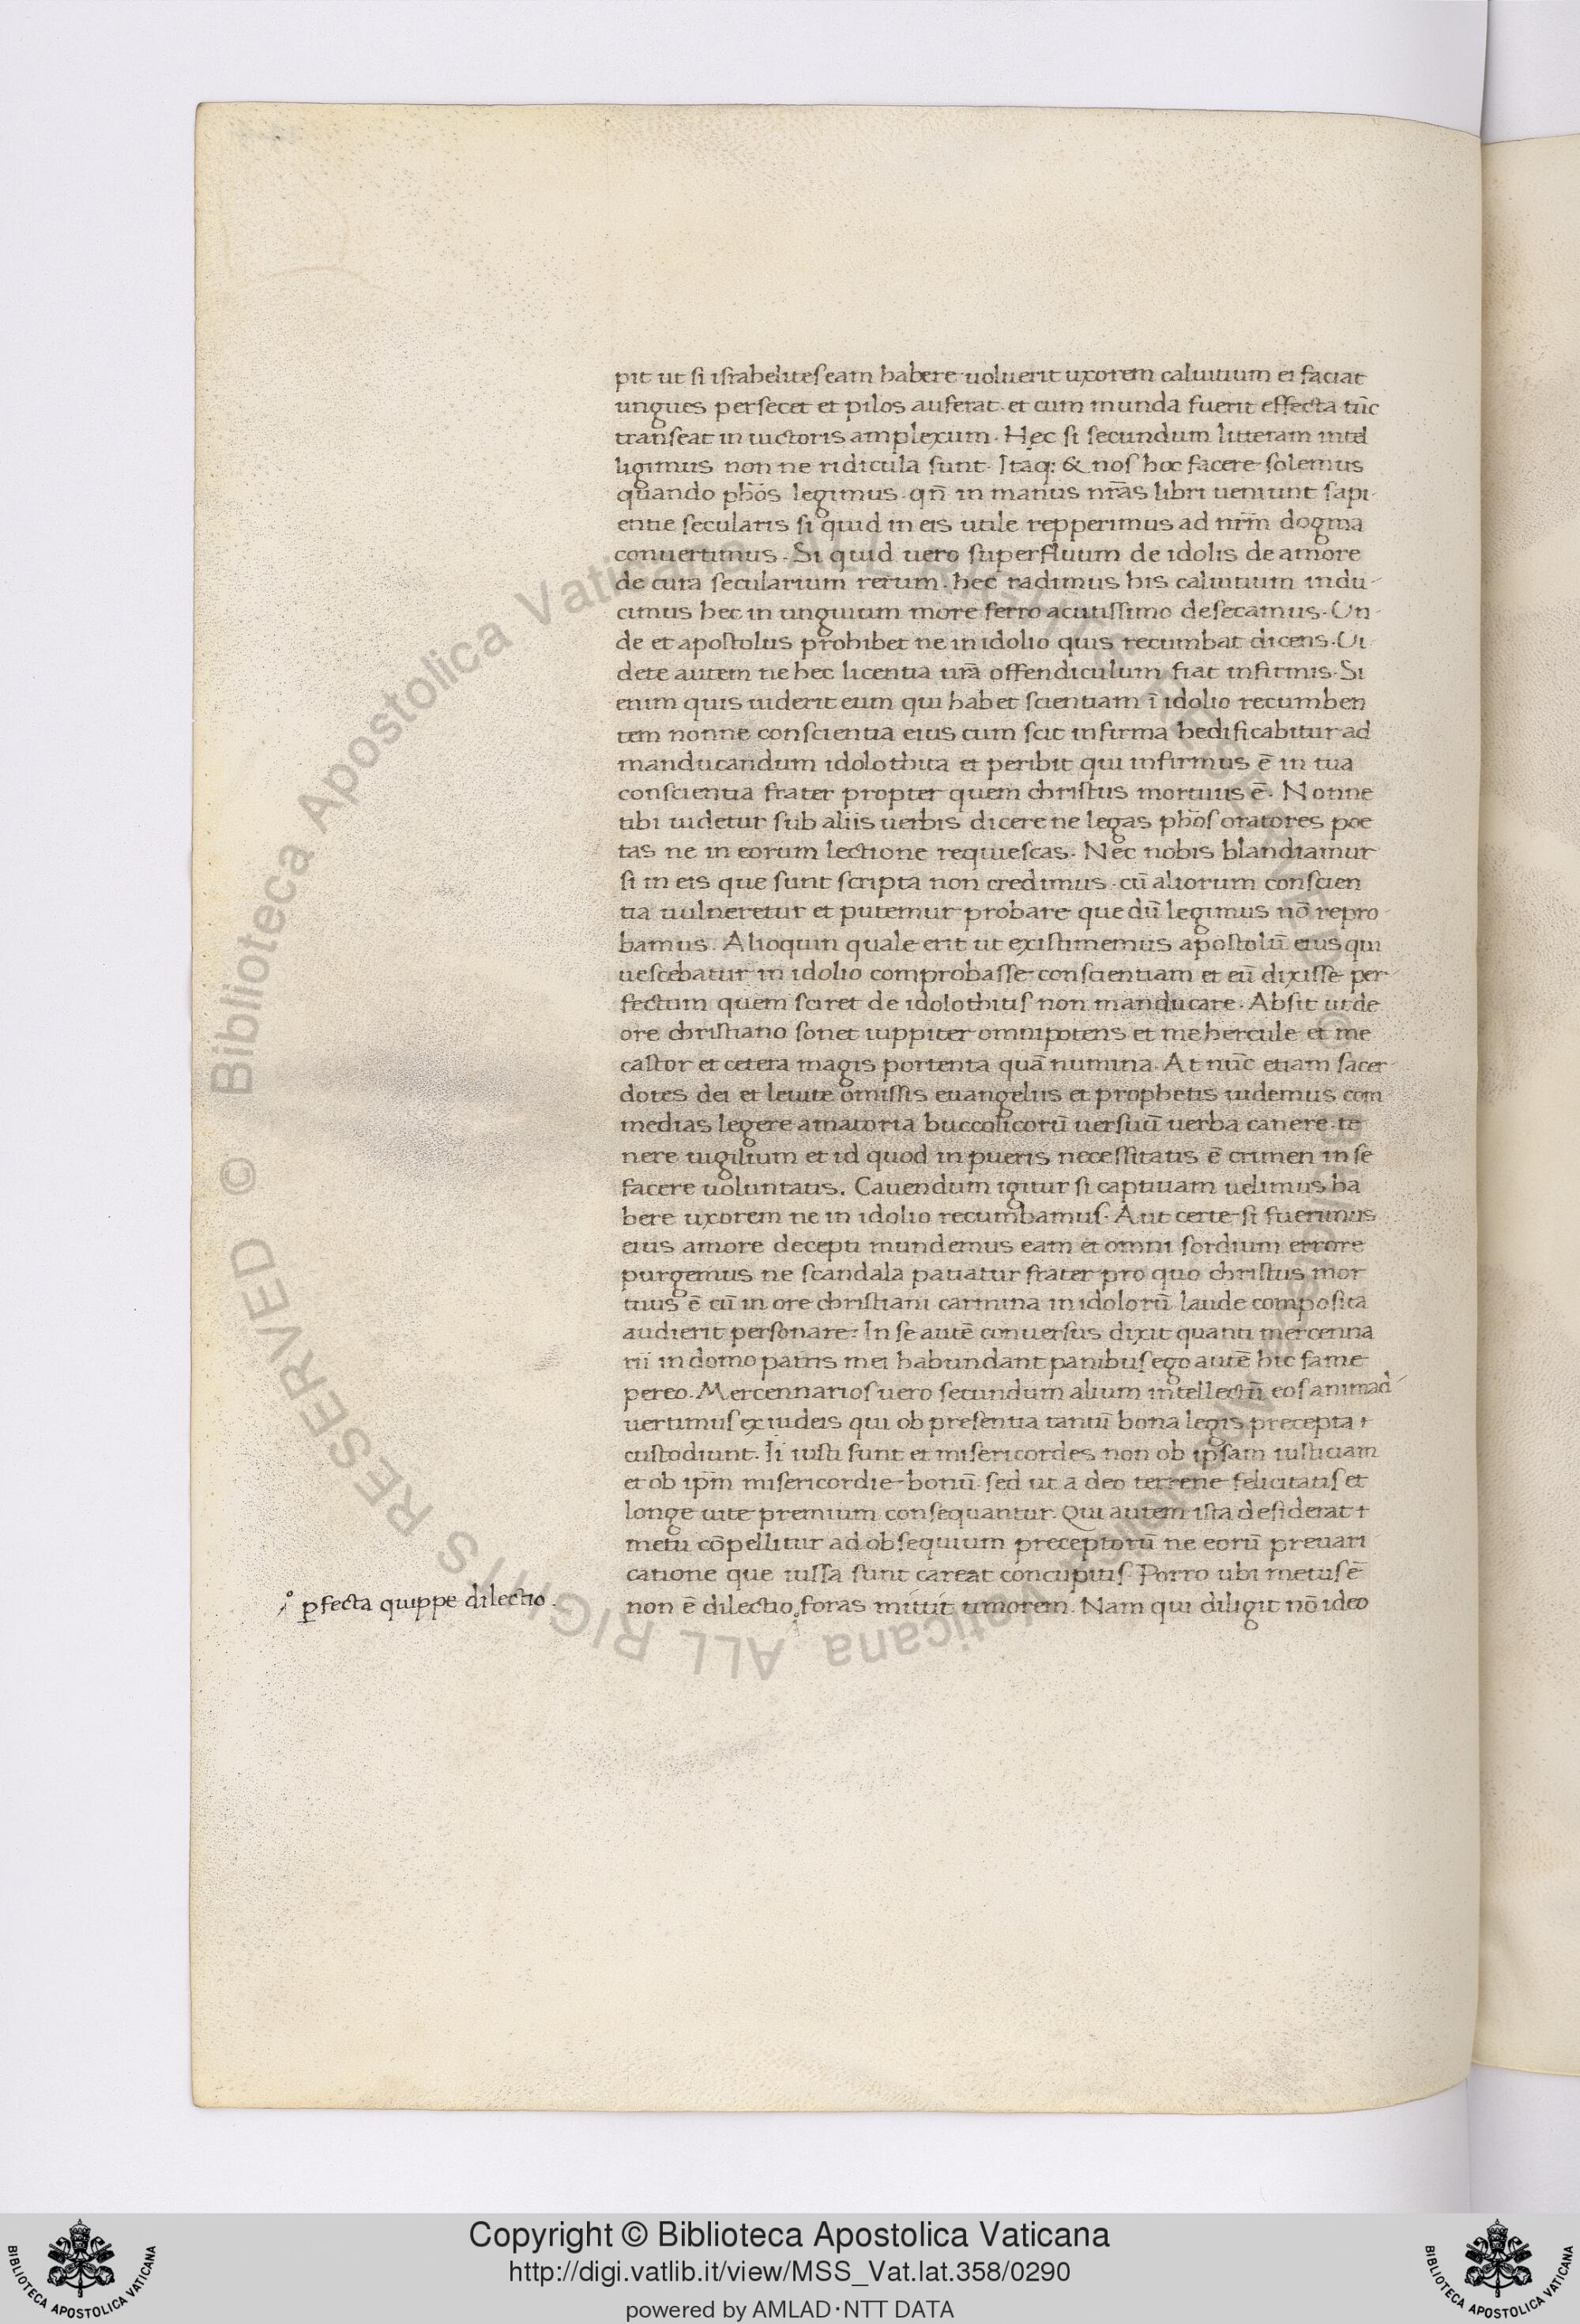 pit ut si israheliteseam habere uoluerit uxorem caluitium ei faciat
ungues persecet et pilos auferat. et cum munda fuerit effecta tūc
transeat in uictoris amplexum. Hęc si secundum litteram intel
ligimus non ne ridicula sunt. Itaq; & nos hoc facere solemus
quando pħos legimus. qn̄ in manus nr̄as libri ueniunt sapi-
entie secularis si quid in eis utile repperimus ad nrm̄ dogma
conuertimus. Si quid uero superfluum de idolis de amore
de cura secularium rerum. hec radimus his caluitium indu-
cimus hec in unguium more ferro acutissimo desecamus. Un-
de et apostolus prohibet ne in idolio quis recumbat dicens. Ui-
dete autem ne hec licentia ur̄a offendiculum fiat infirmis. Si
enim quis uiderit eum qui habet scientiam ī idolio recumben
tem nonne conscientia eius cum scit infirma hedificabitur ad
manducandum idolothita et peribit qui infirmus ē in tua
conscientia frater propter quem christus mortuus ē. Nonne
tibi uidetur sub aliis uerbis dicere ne legas pħos oratores poe
tas ne in eorum lectione requiescas. Nec nobis blandiamur
si in eis que sunt scripta non credimus. cū aliorum conscien
tia uulneretur et putemur probare que dū legimus nō repro
bamus. Alioquin quale erit ut existimemus apostolū eius qui
uescebatur in idolio comprobasse conscientiam et eū dixisse per-
fectum quem sciret de idolothitis non manducare. Absit ut de
ore christiano sonet iuppiter omnipotens et me hercule et me
castor et cetera magis portenta quā numina. At nūc etiam sacer-
dotes dei et leuite omissis euangeliis et prophetis uidemus com
medias legere amatoria buccolicorū uersuū uerba canere te
nere uigilium et id quod in pueris necessitatis ē crimen in se
facere uoluntatis. Cauendum igitur si captiuam uelimus ha
bere uxorem ne in idolio recumbamus. Aut certe si fuerimus
eius amore decepti mundemus eam et omni sordium errore
purgemus ne scandala patiatur frater pro quo christus mor
tuus ē cū in ore christiani carmina in idolorū laude composita
audierit personare: In se autē conuersus dixit quanti mercenna
rii in domo patris mei habundant panibus ego autē hic fame
pereo. Mercennarios uero secundum alium intellectū eos animad-
uertimus ex iudeis qui ob presentia tantū bona legis precepta
custodiunt. Ii iusti sunt et misericordes non ob ipsam iusticiam
et ob ipm̄ misericordie bonū. sed ut a deo terrene felicitatis et
longe uite premium consequantur. Qui autem ista desiderat
metu cōpellitur ad obsequium preceptorū ne eorū preuari
catione que iussa sunt careat concupitis. Porro ubi metus ē
non ē dilectio foras mittit timorem. Nam qui diligit nō ideo
ꝑfecta quippe dilectio.
© Biblioteca Apostolica Vaticana ALL RIGHTS RESERVED
© Biblioteca Apostolica Vaticana ALL RIGHTS RESERVED
Copyright © Biblioteca Apostolica Vaticana
http://digi.vatlib.it/view/MSS_Vat.lat.358/0290
powered by AMLAD·NTT DATA
BIBLIOTECA APOSTOLICA VATICANA
BIBLIOTECA APOSTOLICA VATICANA